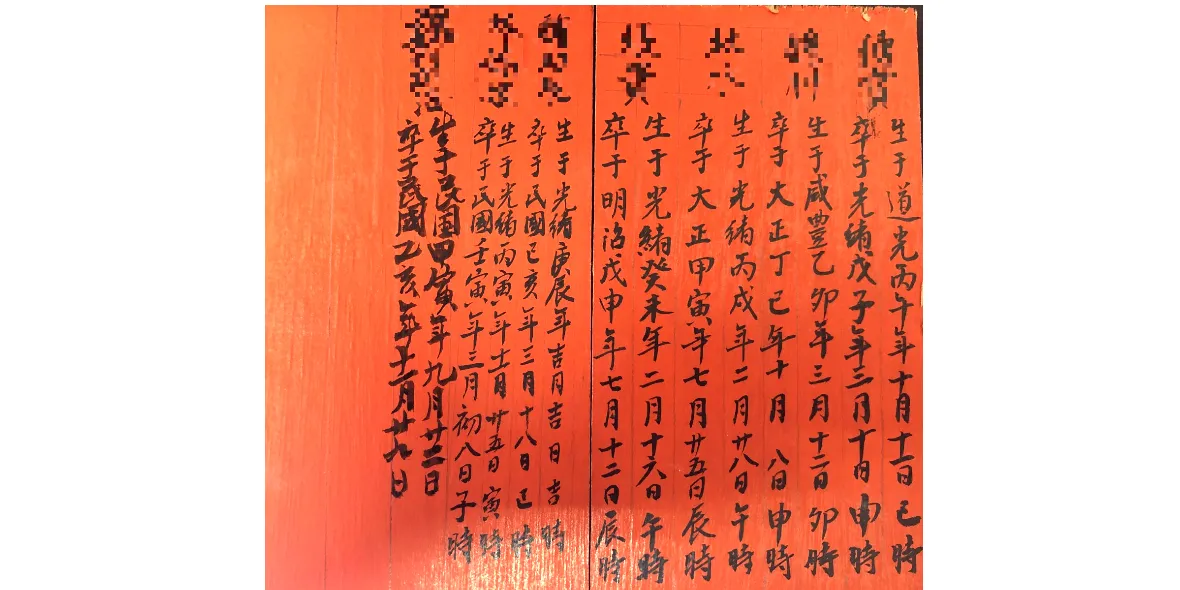 生于道光丙午年十月十一日巳時
卒于光緒戊子年三月十日申時
生于咸豐乙卯年三月十二日卯時
卒于大正丁巳年十月八日申時
生于光緒丙戌年二月廿八日午時
卒于大正甲寅年七月廿五日辰時
生于光緒癸未年二月十六日午時
卒于明治戊申年七月十二日辰時
生于光緒庚辰年吉月吉日吉時
卒于民國己亥年三月十八日巳時
生于光緒丙寅年十一月廿五日寅時
卒于民國壬寅年三月初八日子時
生于民国甲寅年九月廿二日
卒于民國乙亥年十二月廿九日